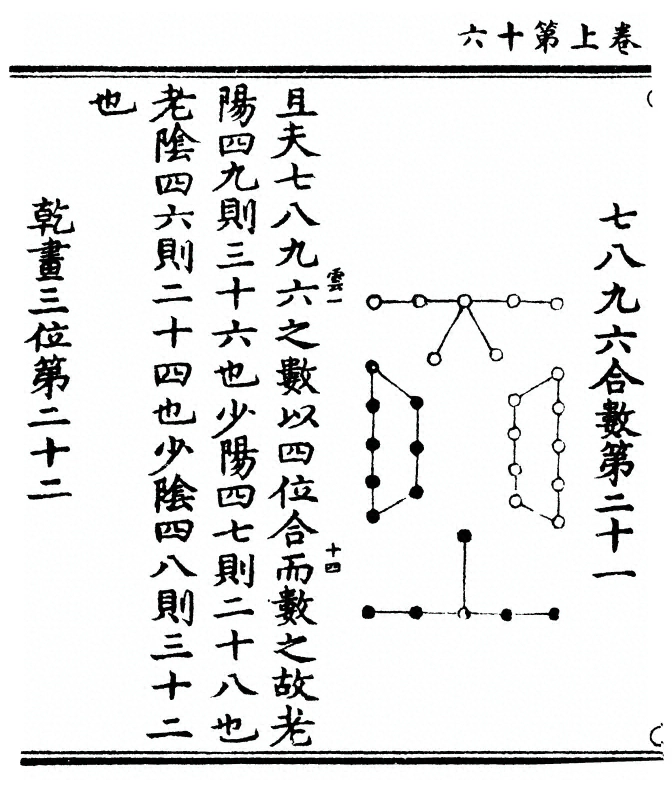 卷上第十六
七八九六合數第二十一
雲一
十四
且夫七八九六之數以四位合而數之故老
陽四九則三十六也少陽四七則二十八也
老陰四六則二十四也少陰四八則三十二
也
乾畫三位第二十二